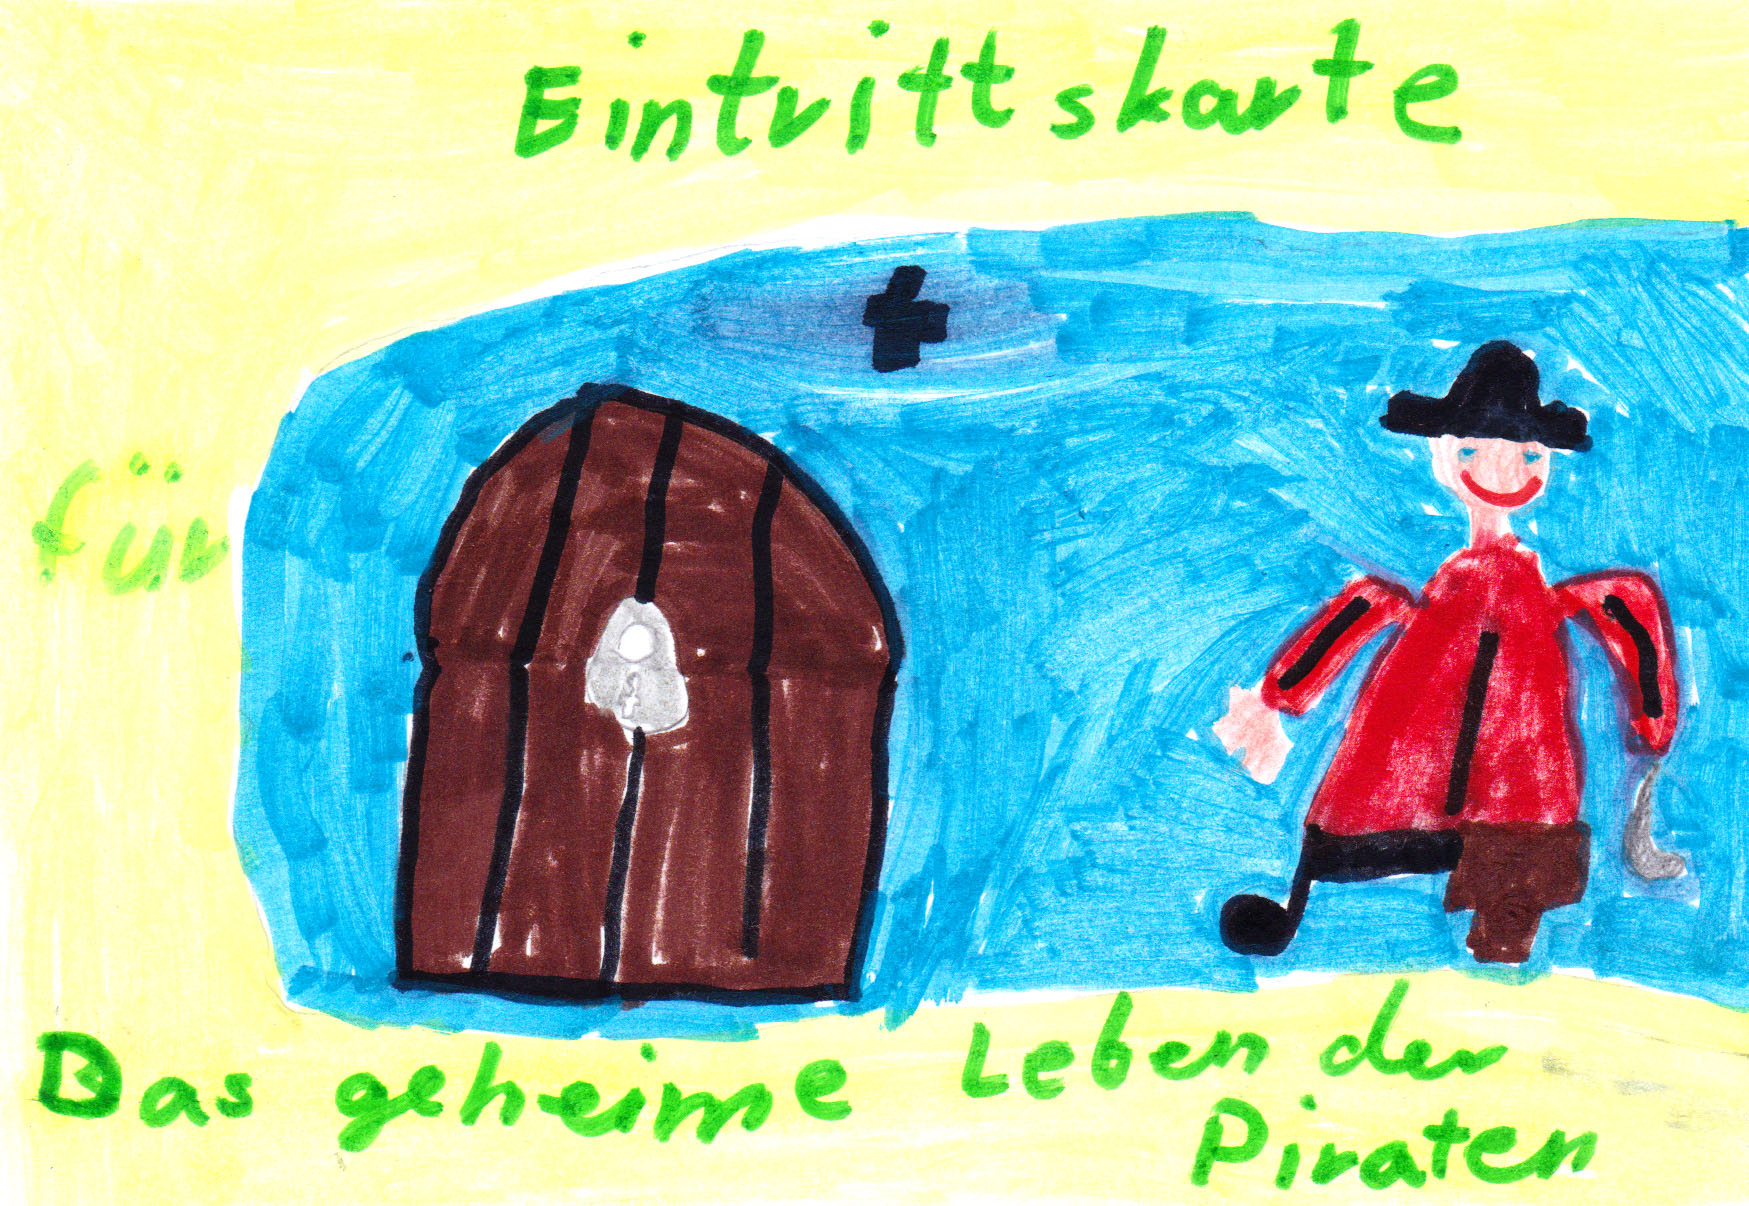 Eintrittskarte
für
Das geheime Leben der
Piraten